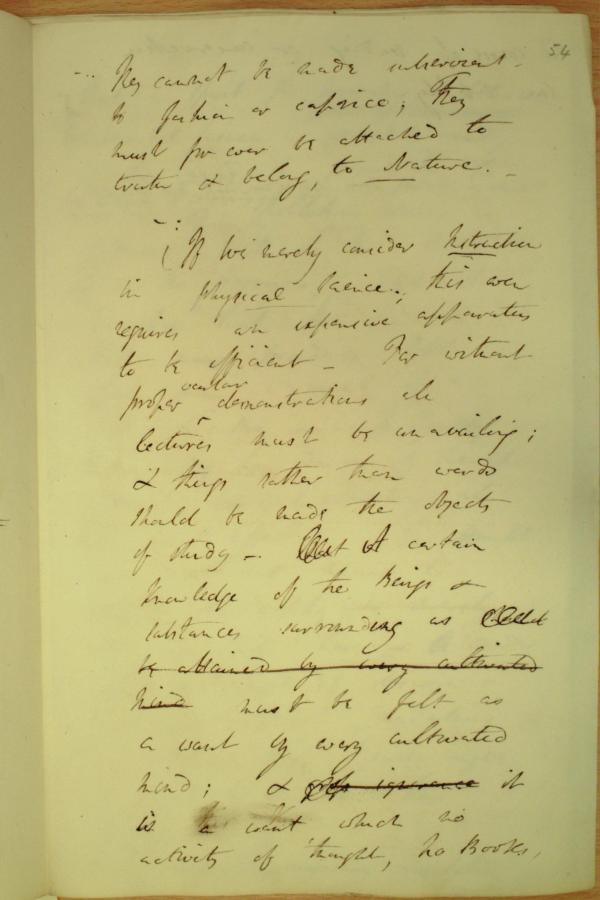 54
They cannot be made subservient
to fashion or caprice; They
must for ever be attached to
truth & belong, to Nature. –
If we merely consider Instruction
in physical Science, this even
requires an expensive apparatus
to be efficient – For without
proper ocular demonstrations all
lectures must be unavailing;
& things rather than words
should be made the objects
of study –. A certain
knowledge of the Beings &
substances surrounding us
be attained by every cultivated
mind must be felt as
a want by every cultivated
mind; & ignorance it
is a want which no
activity of thought, no Books,